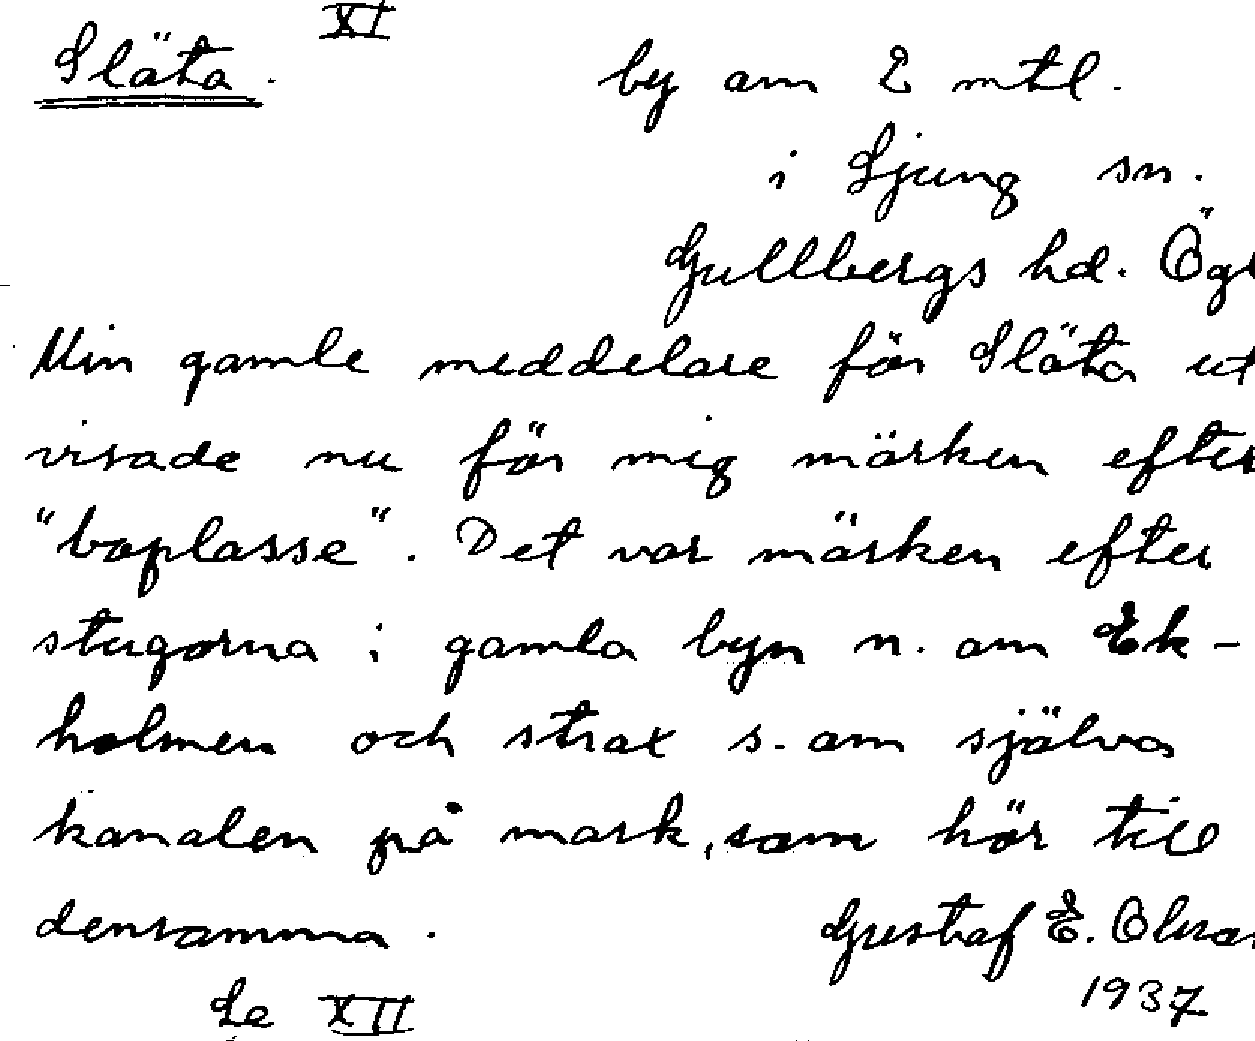 XI
Släta. by om 2 mtl.
i Ljung sn.
Gullbergs hd. Ögl
Min gamle meddelare för Släta ut
visade nu för mig märken efter
"boplasse". Det var märken efter
stugorna i gamla byn n. om Ek-
holmen och strax s. om själva
kanalen på mark, som hör till
densamma. Gustaf E. Olsson
Se XII 1937